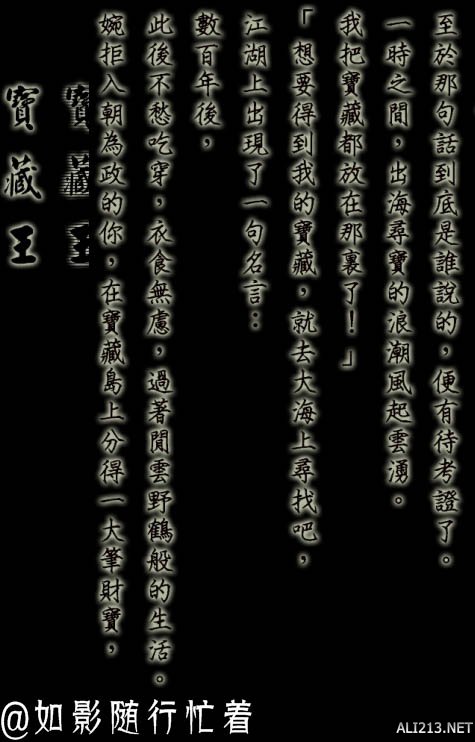 寶藏王
寶藏王
婉拒入朝為政的你，在寶藏島上分得一大筆財寶，
此後不愁吃穿，衣食無慮，過著閒雲野鶴般的生活。
數百年後，
江湖上出現了一句名言：
「想要得到我的寶藏，就去大海上尋找吧，
我把寶藏都放在那裏了！」
一時之間，出海尋寶的浪潮風起雲湧。
至於那句話到底是誰說的，便有待考證了。
@如影随行忙着
ALI213.NET